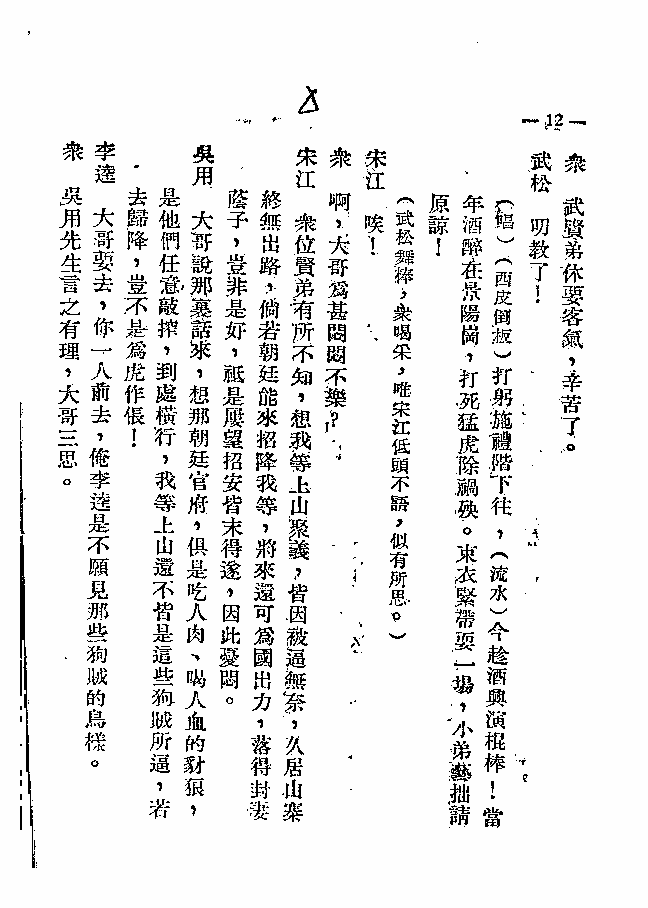 — 12 —
衆　武賢弟休要客氣，辛苦了。
武松　明教了！
（唱）（西皮倒板）打躬施禮階下往，（流水）今趁酒興演棍棒！當
年酒醉在景陽崗，打死猛虎除禍殃。束衣緊帶耍一場，小弟藝拙請
原諒！
（武松舞棒，衆喝采，唯宋江低頭不語，似有所思。）
宋江　唉！
衆　啊，大哥爲甚悶悶不樂？
宋江　衆位賢弟有所不知，想我等上山聚義，皆因被逼無奈，久居山寨
終無出路，倘若朝廷能來招降我等，將來還可爲國出力，落得封妻
蔭子，豈非是好，祗是屢望招安皆未得遂，因此憂悶。
吳用　大哥說那裏話來，想那朝廷官府，俱是吃人肉、喝人血的豺狼，
是他們任意敲搾，到處橫行，我等上山還不皆是這些狗賊所逼，若
去歸降，豈不是爲虎作倀！
李逵　大哥要去，你一人前去，俺李逵是不願見那些狗賊的鳥樣。
衆　吳用先生言之有理，大哥三思。